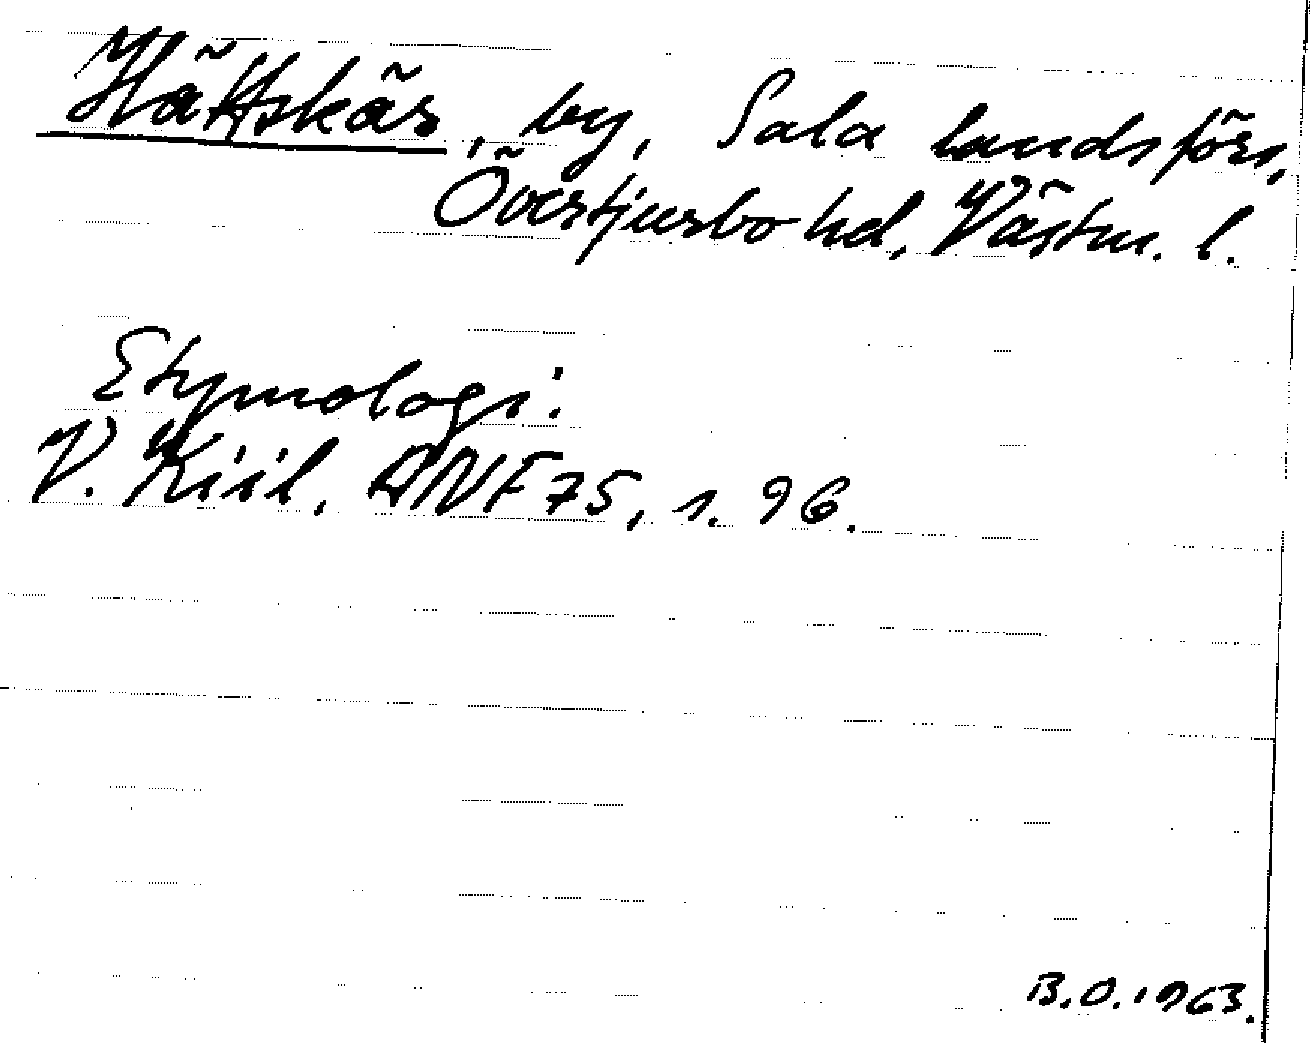 Hättskär, by, Sala landsförs,
Övertjurbo hd, Västm. l.
Etymologi:
V. Kiil, ANF 75, s. 96.
B.O. 1963.